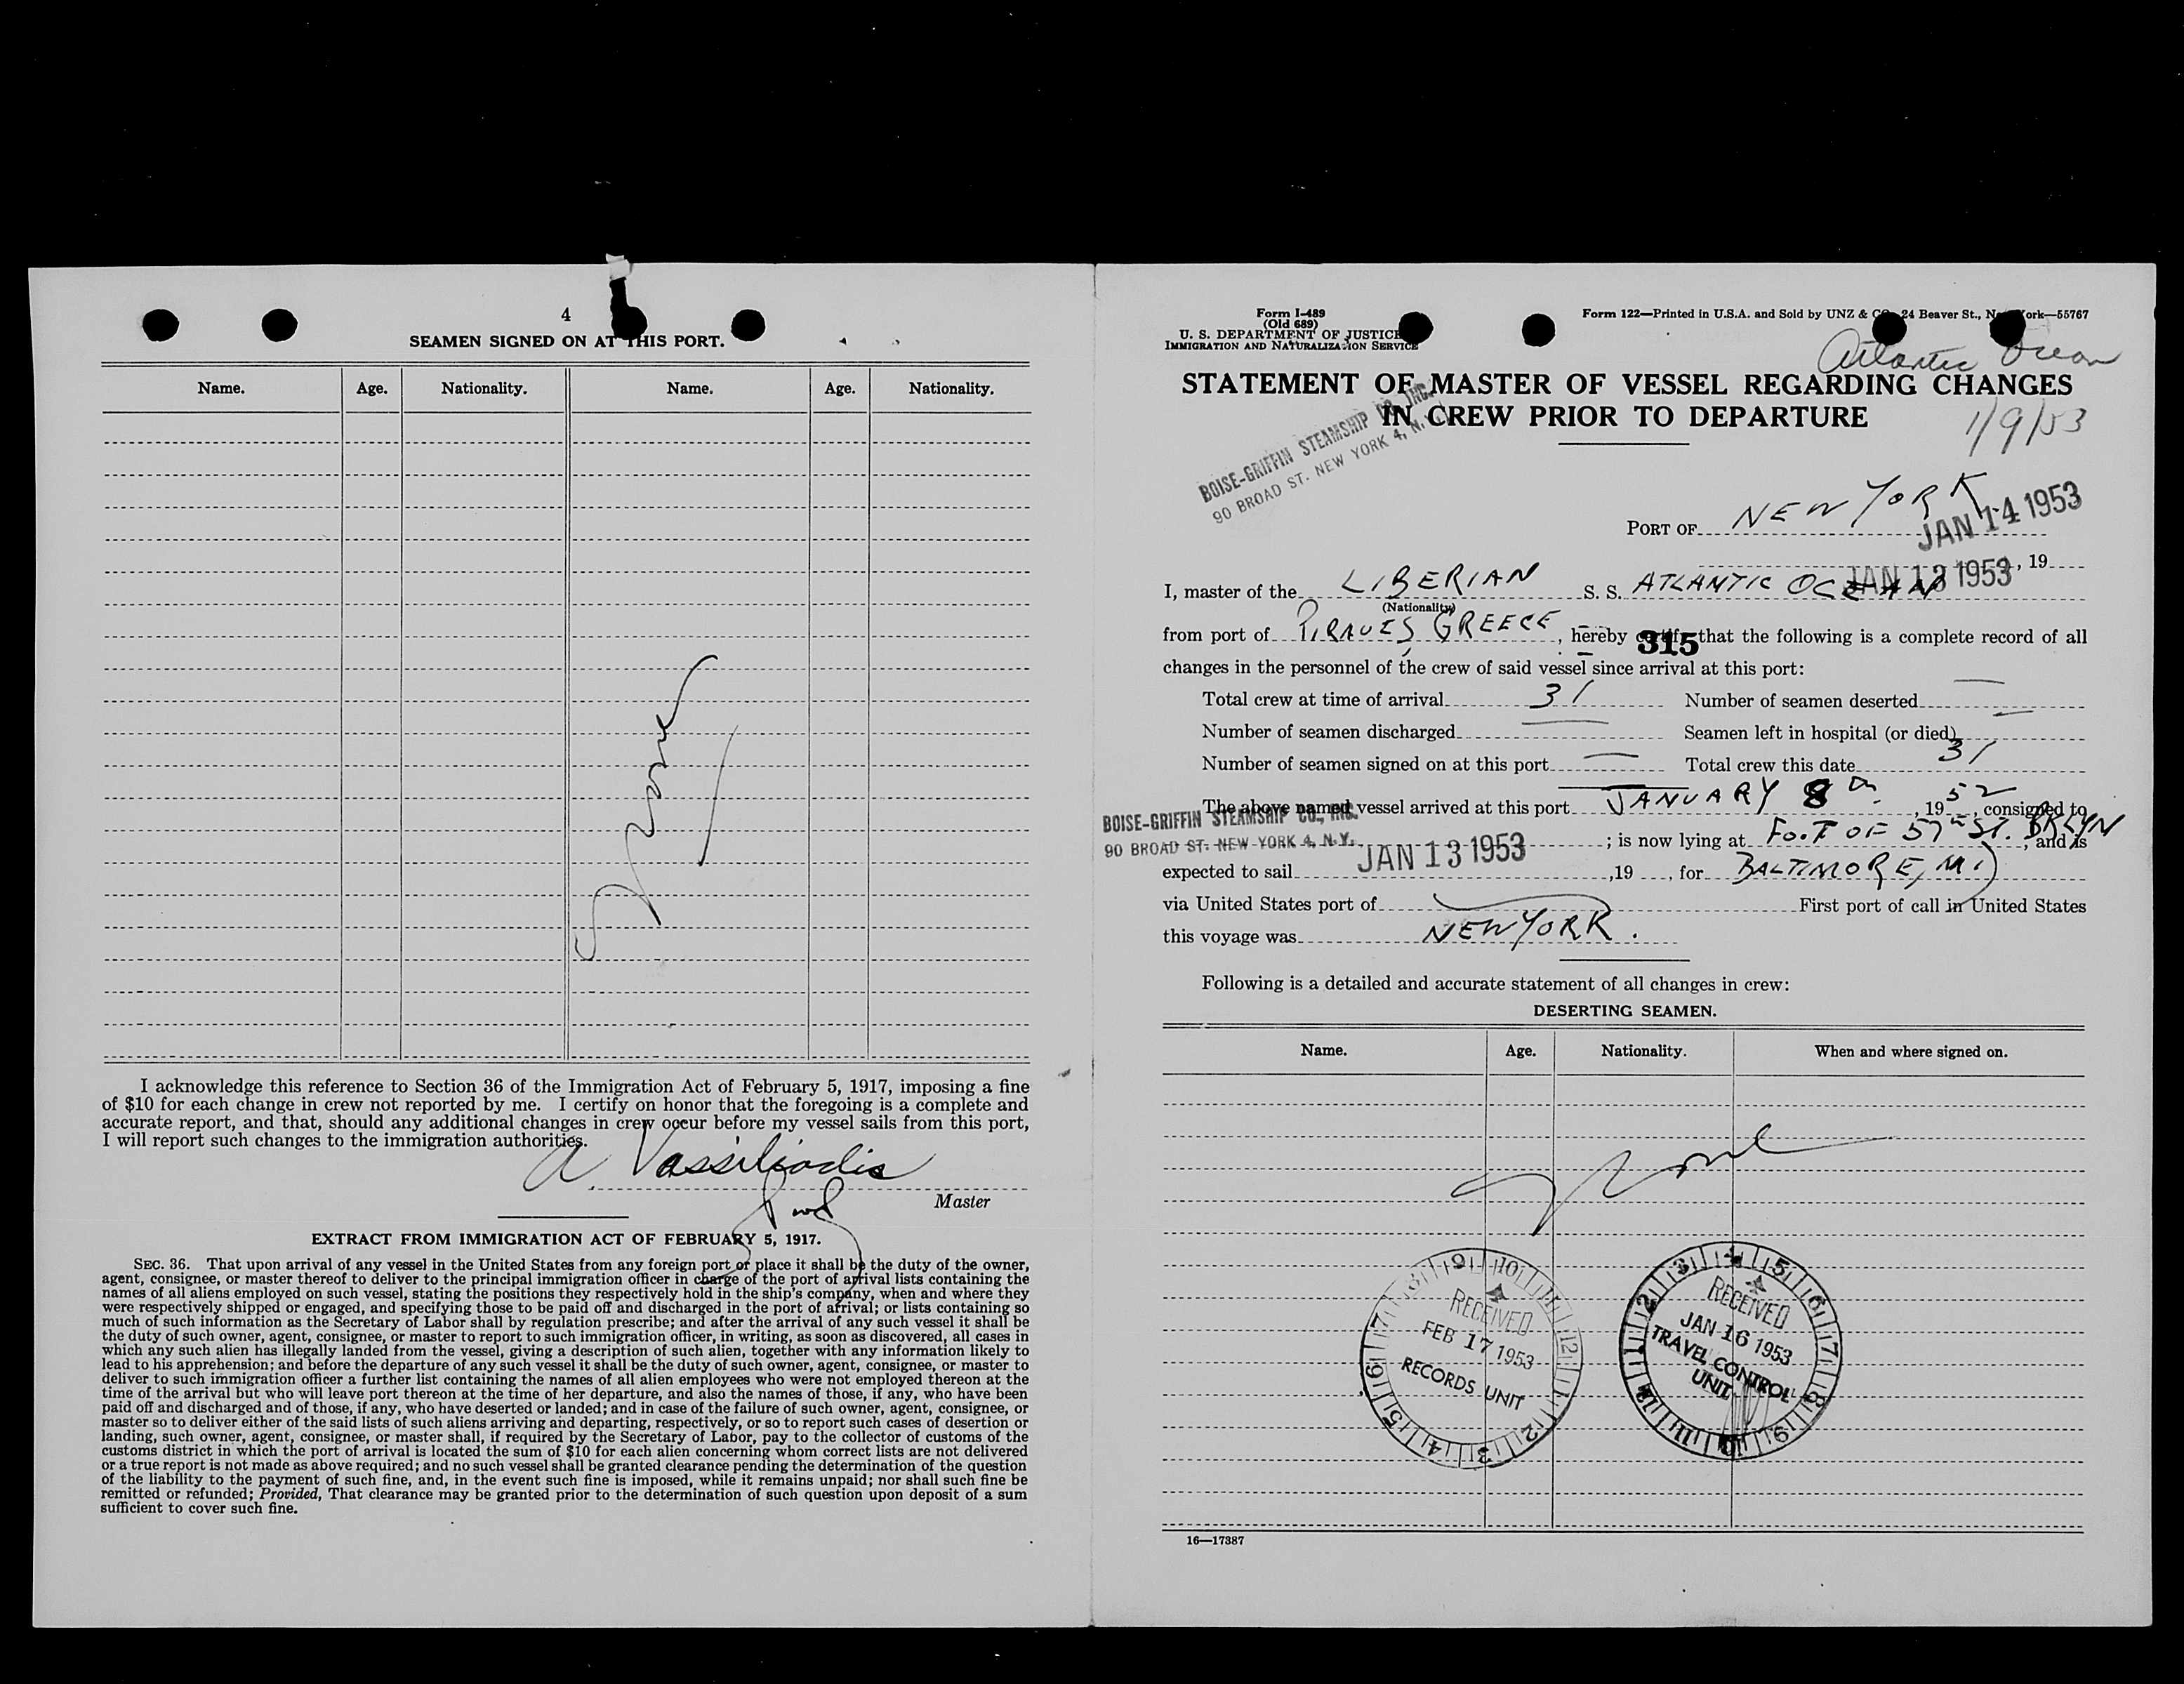 4
SEAMEN SIGNED ON AT THIS PORT.
Name. Age. Nationality. Name. Age. Nationality.
None
I acknowledge this reference to Section 36 of the Immigration Act of February 5, 1917, imposing a fine
of $10 for each change in crew not reported by me. I certify on honor that the foregoing is a complete and
accurate report, and that, should any additional changes in crew occur before my vessel sails from this port,
I will report such changes to the immigration authorities.
A. Vassiliadis
Master
EXTRACT FROM IMMIGRATION ACT OF FEBRUARY 5, 1917.
SEC. 36. That upon arrival of any vessel in the United States from any foreign port or place it shall be the duty of the owner,
agent, consignee, or master thereof to deliver to the principal immigration officer in charge of the port of arrival lists containing the
names of all aliens employed on such vessel, stating the positions they respectively hold in the ship's company, when and where they
were respectively shipped or engaged, and specifying those to be paid off and discharged in the port of arrival; or lists containing so
much of such information as the Secretary of Labor shall by regulation prescribe; and after the arrival of any such vessel it shall be
the duty of such owner, agent, consignee, or master to report to such immigration officer, in writing, as soon as discovered, all cases in
which any such alien has illegally landed from the vessel, giving a description of such alien, together with any information likely to
lead to his apprehension; and before the departure of any such vessel it shall be the duty of such owner, agent, consignee, or master to
deliver to such immigration officer a further list containing the names of all alien employees who were not employed thereon at the
time of the arrival but who will leave port thereon at the time of her departure, and also the names of those, if any, who have been
paid off and discharged and of those, if any, who have deserted or landed; and in case of the failure of such owner, agent, consignee, or
master so to deliver either of the said lists of such aliens arriving and departing, respectively, or so to report such cases of desertion or
landing, such owner, agent, consignee, or master shall, if required by the Secretary of Labor, pay to the collector of customs of the
customs district in which the port of arrival is located the sum of $10 for each alien concerning whom correct lists are not delivered
or a true report is not made as above required; and no such vessel shall be granted clearance pending the determination of the question
of the liability to the payment of such fine, and, in the event such fine is imposed, while it remains unpaid; nor shall such fine be
remitted or refunded; Provided, That clearance may be granted prior to the determination of such question upon deposit of a sum
sufficient to cover such fine.
Form I-489
(Old 689)
U. S. DEPARTMENT OF JUSTICE
IMMIGRATION AND NATURALIZATION SERVICE
Form 122—Printed in U.S.A. and Sold by UNZ & CO. 24 Beaver St., New York—55767
Atlantic Ocean
STATEMENT OF MASTER OF VESSEL REGARDING CHANGES
IN CREW PRIOR TO DEPARTURE
1/9/53
BOISE-GRIFFIN STEAMSHIP CO., INC.
90 BROAD ST. NEW YORK 4, N.Y.
PORT OF NEW YORK
JAN 14 1953
JAN 13 1953, 19
I, master of the LIBERIAN S. S. ATLANTIC OCEAN
(Nationality)
from port of PIRAUES GREECE, hereby certify that the following is a complete record of all
315
changes in the personnel of the crew of said vessel since arrival at this port:
Total crew at time of arrival 31 Number of seamen deserted —
Number of seamen discharged — Seamen left in hospital (or died) —
Number of seamen signed on at this port — Total crew this date 31
The above named vessel arrived at this port JANUARY 8th, 1952, consigned to
BOISE-GRIFFIN STEAMSHIP CO., INC.
90 BROAD ST. NEW YORK 4, N.Y. ; is now lying at FOOT OF 57th ST. BKLYN, and is
expected to sail JAN 13 1953, 19, for BALTIMORE, MD
via United States port of — First port of call in United States
this voyage was NEW YORK.
Following is a detailed and accurate statement of all changes in crew:
DESERTING SEAMEN.
Name. Age. Nationality. When and where signed on.
None
RECEIVED
FEB 17 1953
RECORDS UNIT
RECEIVED
JAN 16 1953
TRAVEL CONTROL
UNIT
16—17387